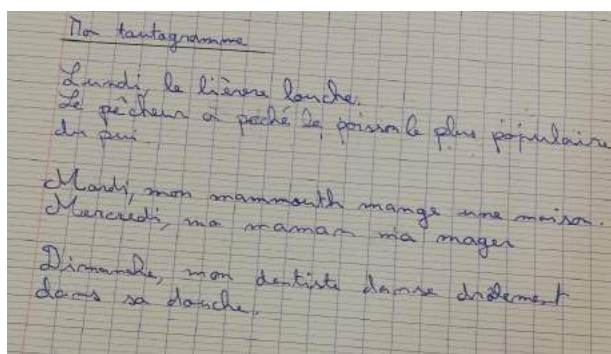 Mon tautogramme
Lundi, le lièvre louche.
Le pêcheur a pêché le poisson le plus populaire
du pui
Mardi, mon mammouth mange une maison.
Mercredi, ma maman ma mager
Dimanche, mon dentiste danse drôlement
dans sa douche.